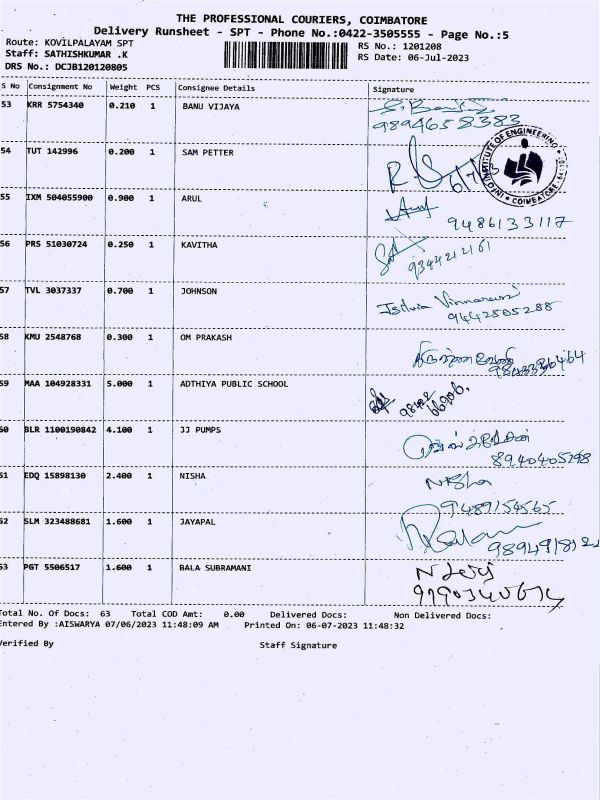 THE PROFESSIONAL COURIERS, COIMBATORE
Delivery Runsheet - SPT - Phone No.:0422-3505555 - Page No.:5
Route: KOVILPALAYAM SPT
RS No.: 1201208
Staff: SATHISHKUMAR .K
RS Date: 06-Jul-2023
DRS No.: DCJB120120805
S No Consignment No Weight PCS Consignee Details Signature
53 KRR 5754340 0.210 1 BANU VIJAYA
9894658383
54 TUT 142996 0.200 1 SAM PETTER
INSTITUTE OF ENGINEERING
COIMBATORE
55 IXM 504055900 0.900 1 ARUL
9486133117
56 PRS 51030724 0.250 1 KAVITHA
9344212161
57 TVL 3037337 0.700 1 JOHNSON
9442505288
58 KMU 2548768 0.300 1 OM PRAKASH
59 MAA 104928331 5.000 1 ADTHIYA PUBLIC SCHOOL
60 BLR 1100190842 4.100 1 JJ PUMPS
8940405298
51 EDQ 15898130 2.400 1 NISHA
Nisha
9489154565
52 SLM 323488681 1.600 1 JAYAPAL
53 PGT 5506517 1.600 1 BALA SUBRAMANI
Total No. Of Docs: 63 Total COD Amt: 0.00 Delivered Docs: Non Delivered Docs:
Entered By :AISWARYA 07/06/2023 11:48:09 AM Printed On: 06-07-2023 11:48:32
Verified By Staff Signature